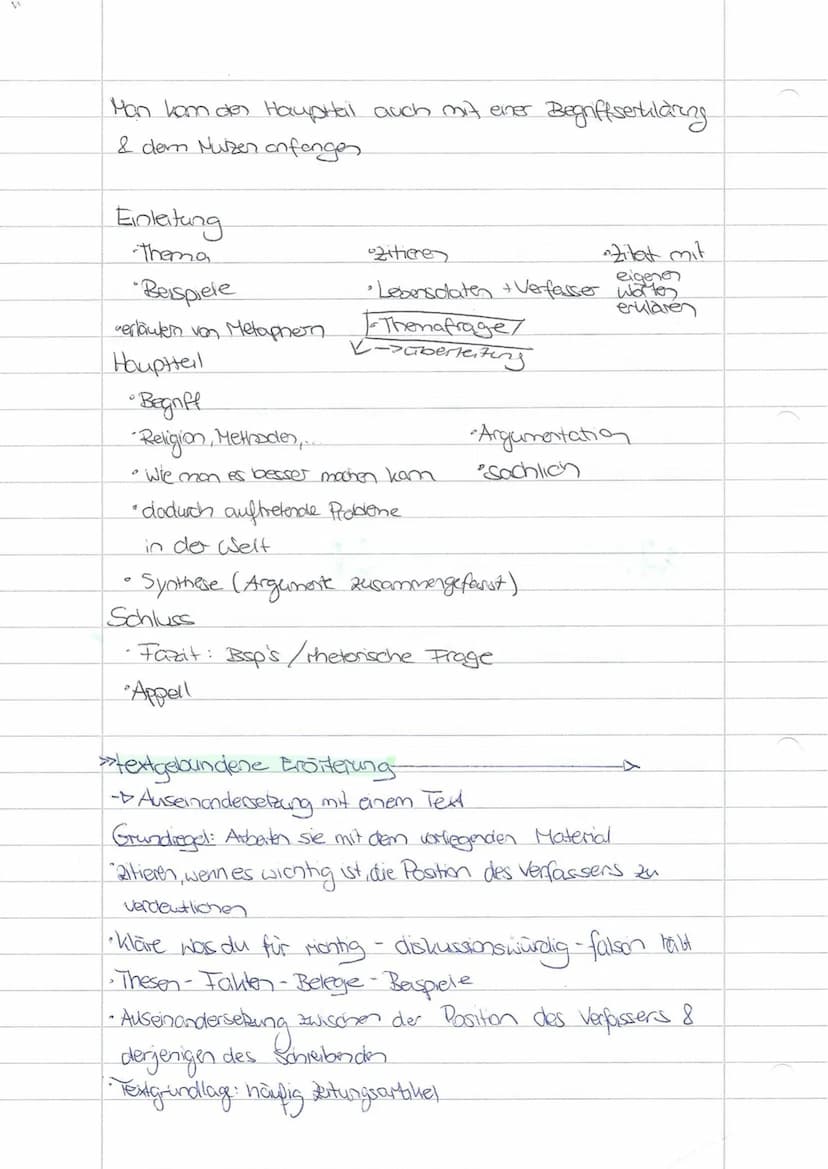 Man kann den Hauptteil auch mit einer Begriffserklärung
& dem Nutzen anfangen
Einleitung
•Thema •Zitieren •Zitat mit
eigenen
•Beispiele •Lebensdaten + Verfasser Worten
erklären
•erläutern von Metaphern -Themafrage/
-> Überleitung
Hauptteil
•Begriff
•Religion, Methoden,... •Argumentation
•Wie man es besser machen kann •sachlich
•dadurch auftretende Probleme
in der Welt
•Synthese (Argumente zusammengefasst)
Schluss
•Fazit: Bsp's / rhetorische Frage
•Appell
>>textgebundene Erörterung
-> Auseinandersetzung mit einem Text
Grundregel: Arbeiten sie mit dem vorliegenden Material
•zitieren, wenn es wichtig ist, die Position des Verfassers zu
verdeutlichen
•Kläre was du für richtig - diskussionswürdig - falsch hält
•Thesen - Fakten - Belege - Beispiele
•Auseinandersetzung zwischen der Position des Verfassers &
derjenigen des Schreibenden
•Textgrundlage: häufig Zeitungsartikel